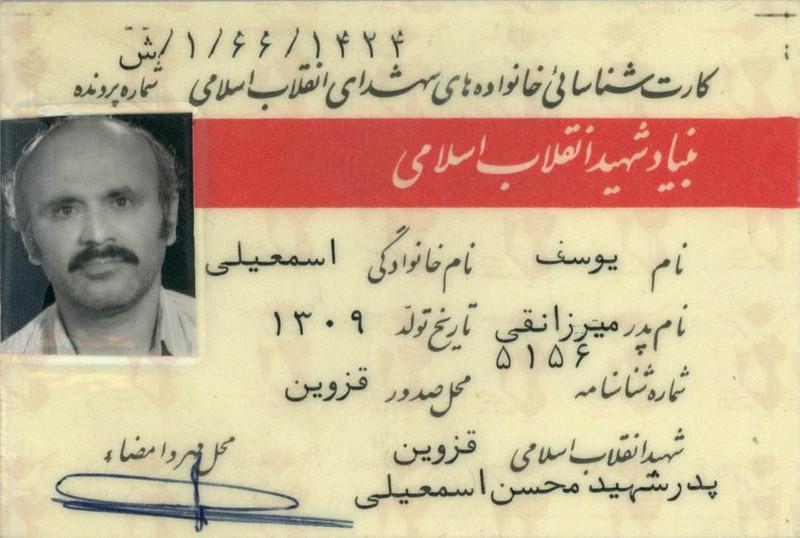 ش/۱/۶۶/۱۴۲۴
کارت شناسائی خانواده های شهدای انقلاب اسلامی شماره پرونده
بنیاد شهید انقلاب اسلامی
نام یوسف نام خانوادگی اسمعیلی
نام پدر میرزانقی تاریخ تولّد ۱۳۰۹
شماره شناسنامه ۵۱۵۶ محل صدور قزوین
شهید انقلاب اسلامی قزوین محل مهر و امضاء
پدرشهید محسن اسمعیلی